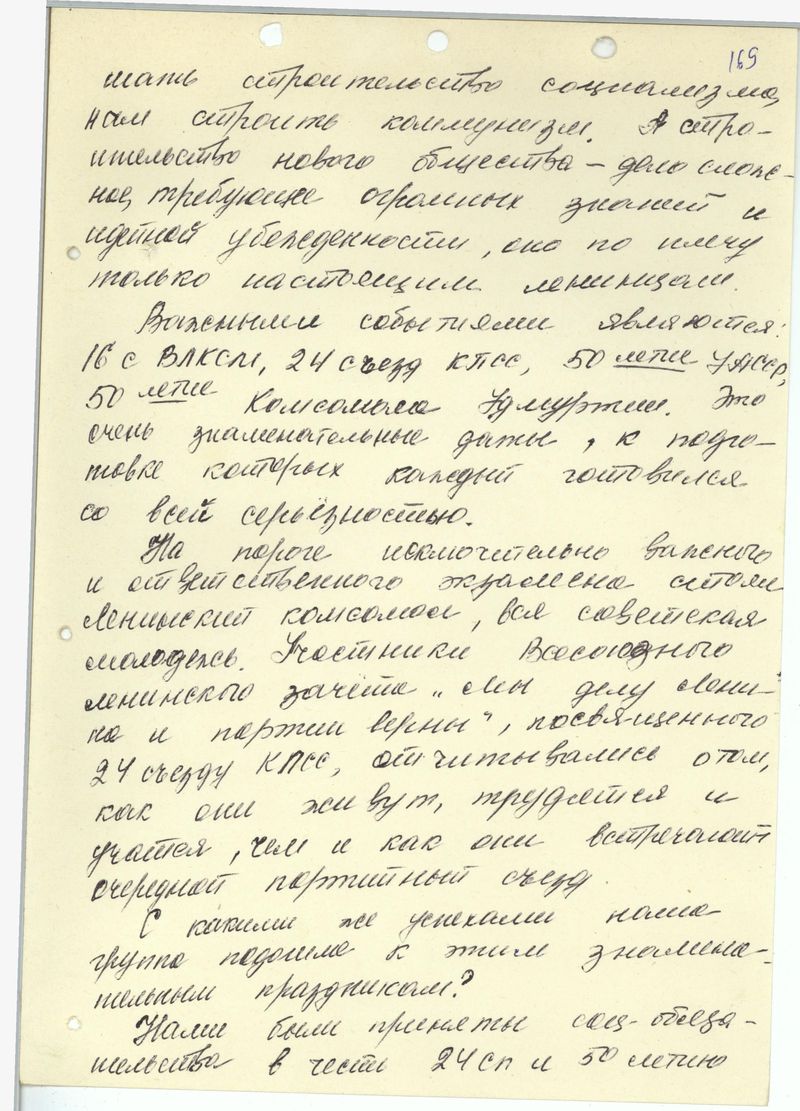 169
шать строительство социализма,
нам строить коммунизм. А стро-
ительство нового общества – дело слож-
ное, требующее огромных знаний и
идейной убежденности, оно по плечу
только настоящим ленинцам.
Важными событиями являются:
16 с ВЛКСМ, 24 съезд КПСС, 50 летие УАССР,
50 летие Комсомола Удмуртии. Это
очень знаменательные даты, к подго-
товке которых каждый готовился
со всей серьёзностью.
На пороге исключительно важного
и ответственного экзамена стоял
Ленинский комсомол, вся советская
молодежь. Участники Всесоюзного
ленинского зачета „Мы делу Лени-
на и партии верны", посвященного
24 съезду КПСС, отчитывались о том,
как они живут, трудятся и
учатся, чем и как они встречают
очередной партийный съезд.
С какими же успехами наша
группа подошла к этим знамена-
тельным праздникам?
Нами были приняты соц-обяза-
тельства в честь 24 сп и 50 летию